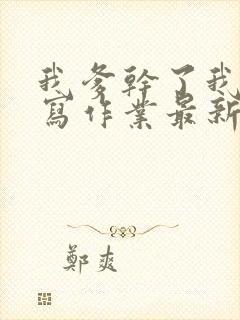 我爹幹了我
寫作業最新
鄭爽